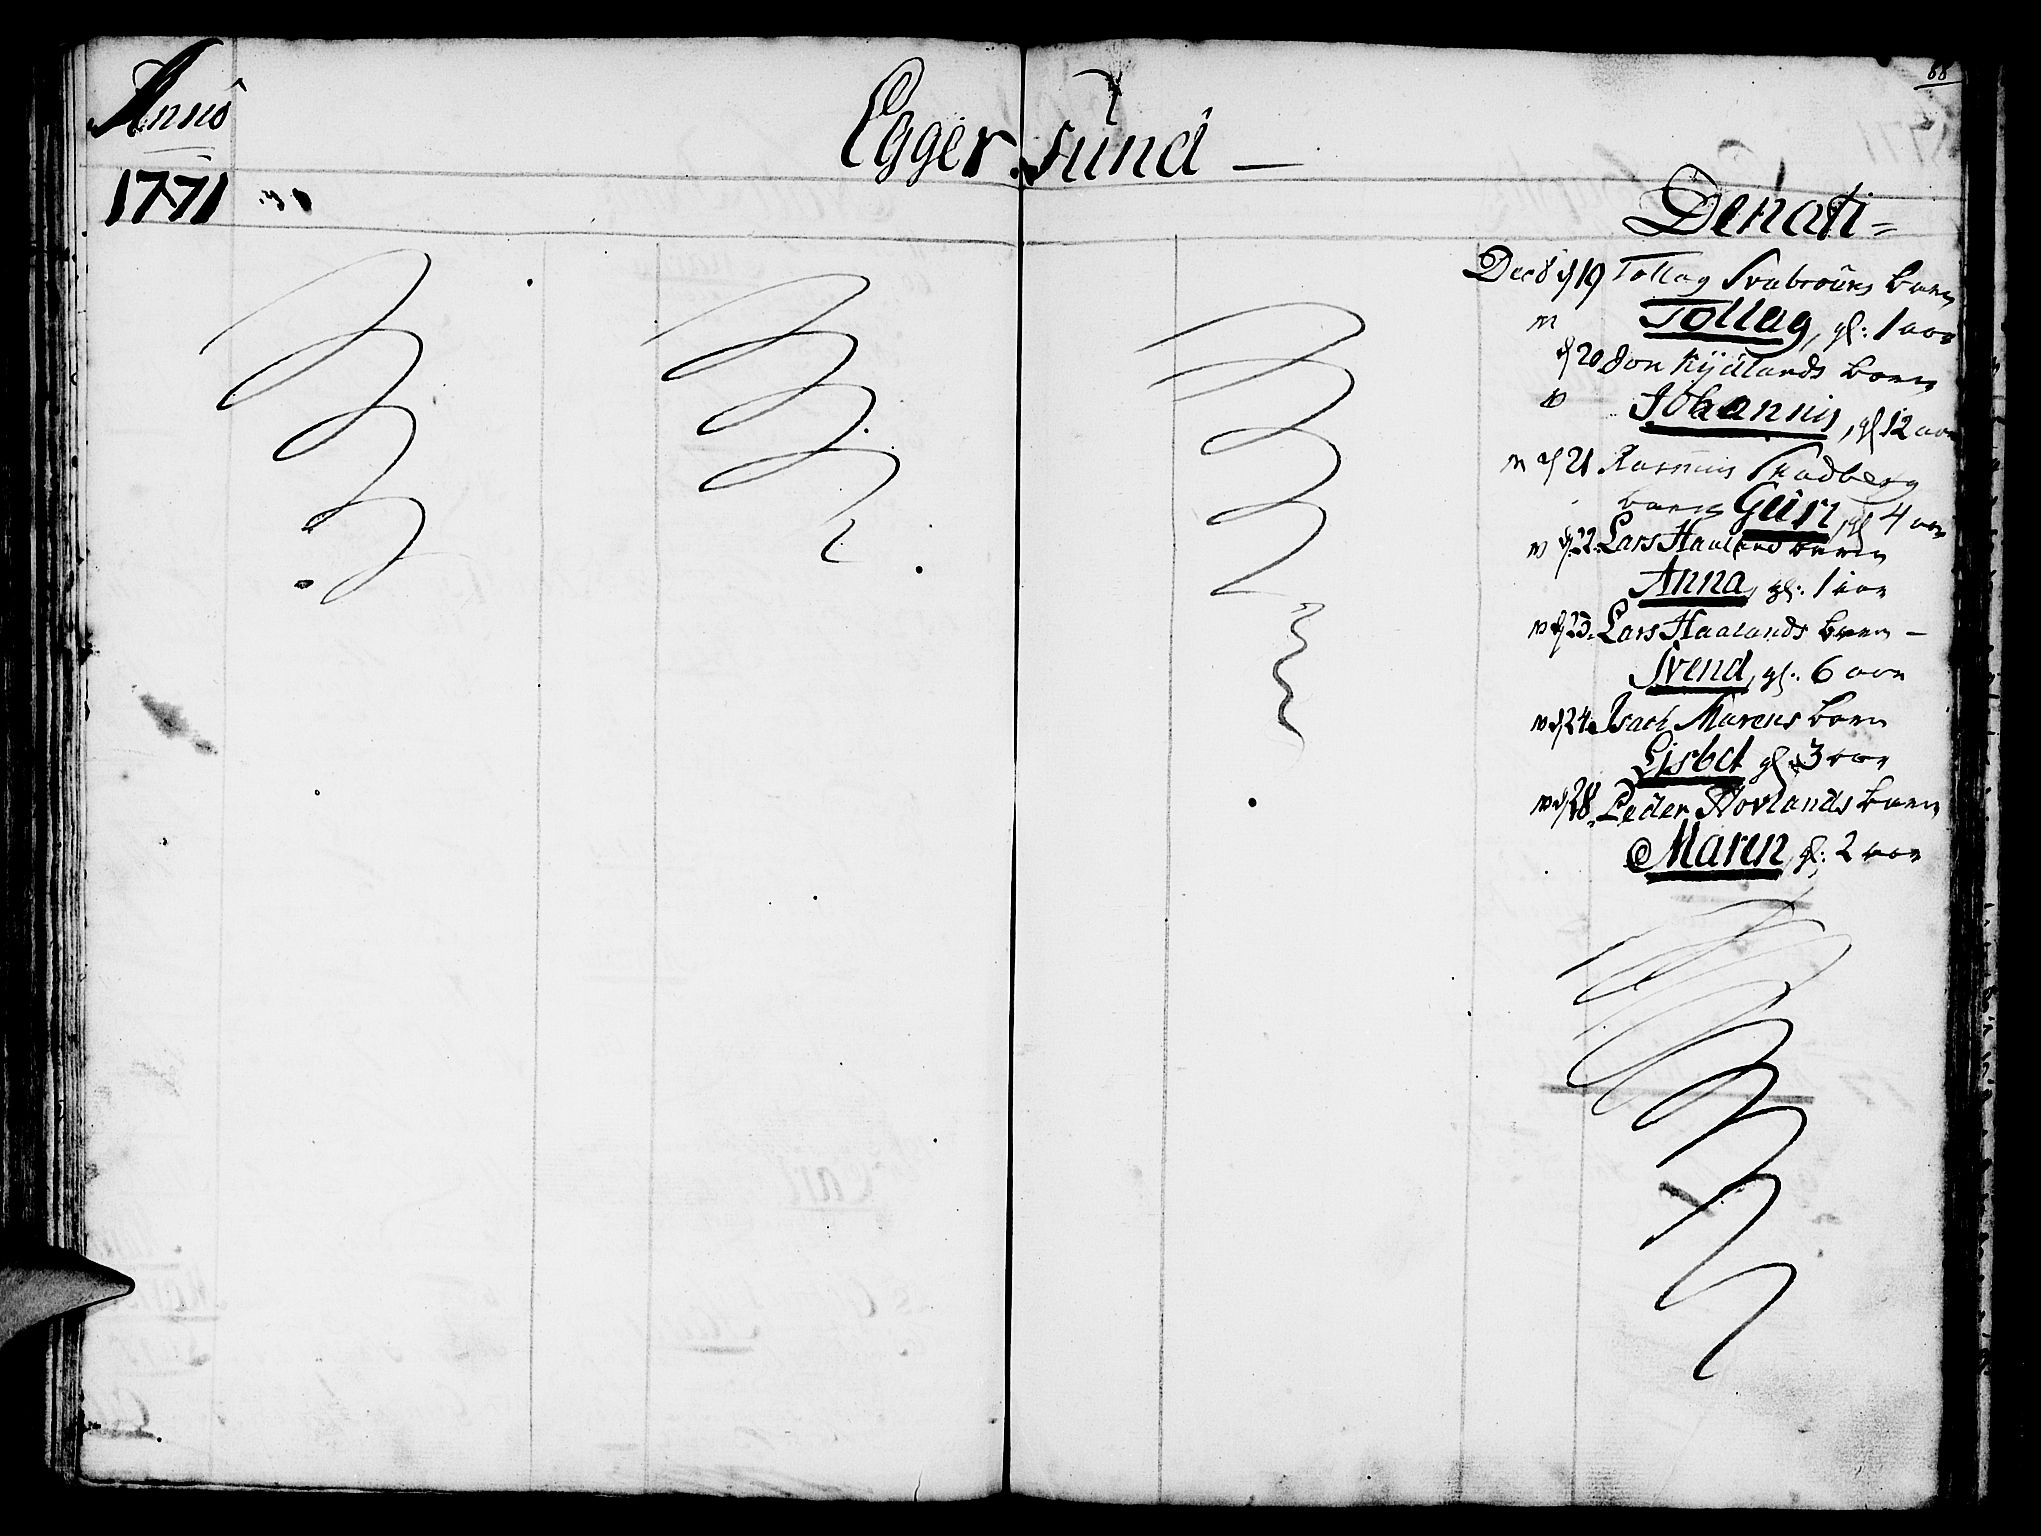 Anno
68
Eggersund —
1771
Denati =
Decb. d 19 Tollag Svabroürs barn
Tollag, gl: 1 aar
d 20 Jon Kydlands barn
Johannis, gl 12 aar
d 21 Rasmus Skadberg
barn Gúri, gl 4 aar
d 22. Lars Haaland barn
Anna, gl: 1 aar
d 23. Lars Haalands barn —
Svend, gl: 6 aar
d 24. Isach Marens barn
Lisbet gl: 3 aar
d 28. Peder Hovlands barn
Maren, gl: 2 aar